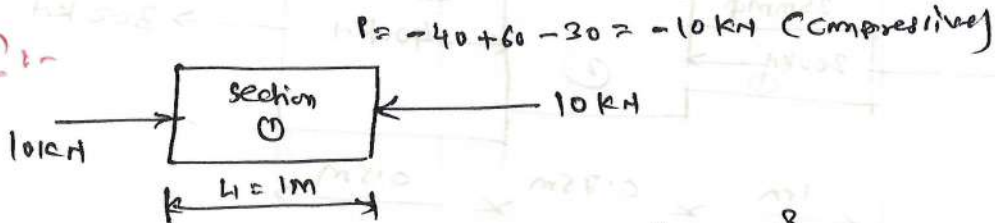 P = -40+60-30 = -10 KN (compressive)
section
①
10 KN
10KN
L1 = 1m